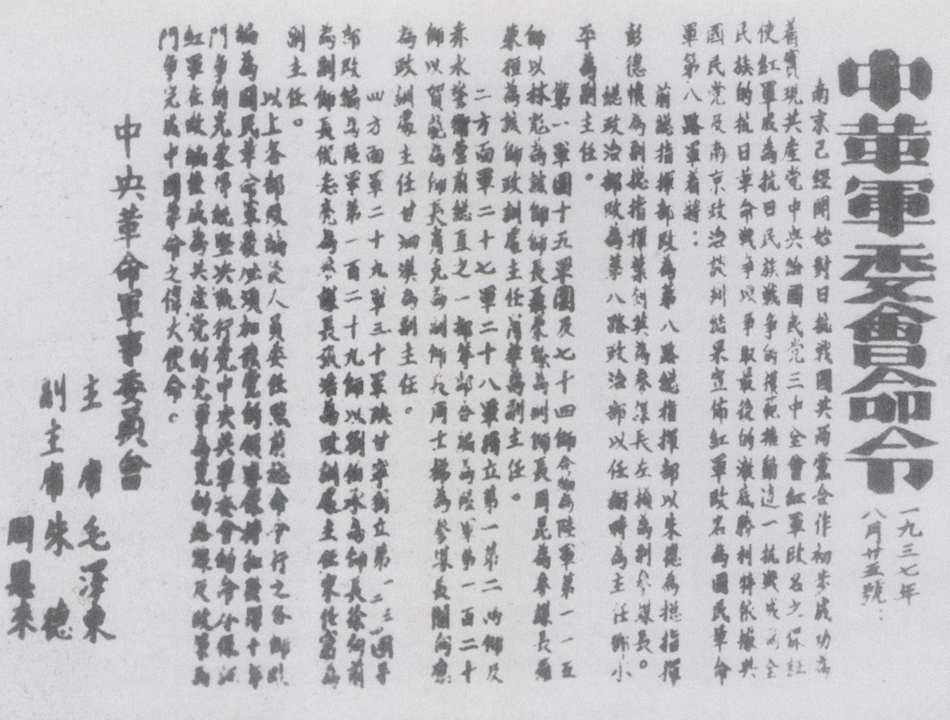 中革軍委會命令
一九三七年
八月廿五號：
南京已經開始對日抗戰國共兩黨合作初步成功為
着實現共產党中央給國民党三中全會紅軍改名之保証
使紅軍成為抗日民族戰爭的模范推動這一抗戰成為全
民族的抗日革命戰爭以爭取最後的澈底勝利特依據與
國民党及南京政治談判結果宣佈紅軍改名為國民革命
軍第八路軍着將：
前總指揮部改為第八路總指揮部以朱德為總指揮
彭德懷為副總指揮葉劍英為參謀長左權為副參謀長。
總政治部改為第八路政治部以任弼時為主任鄧小
平為副主任。
第一軍團十五軍團及七十四師合編為陸軍第一一五
師以林彪為該師師長聶榮臻為副師長周昆為參謀長羅
榮桓為該師政訓處主任蕭華為副主任。
二方面軍二十七軍二十八軍獨立第一第二兩師及
赤水警衛營前總直之一部等部合編為陸軍第一百二十
師以賀龍為師長肖克為副師長周士梯為參謀長關向應
為政訓處主任甘泗淇為副主任。
四方面軍二十九軍三十軍陝甘寧獨立第一二三四團等
部改編為陸軍第一百二十九師以劉伯承為師長徐向前
為副師長倪志亮為參謀長張浩為政訓處主任宋任窮為
副主任。
以上各部改編後人員委任照前總命令行之各師改
編為國民革命軍後必須加強党的領導保持和發揮十年
鬥爭的光榮傳統堅決執行党中央與軍委會的命令保証
紅軍在改編後成為共產党的党軍為党的路線及政策而
鬥爭完成中國革命之偉大使命。
中央革命軍事委員會
主席 毛澤東
副主席 朱德
周恩來